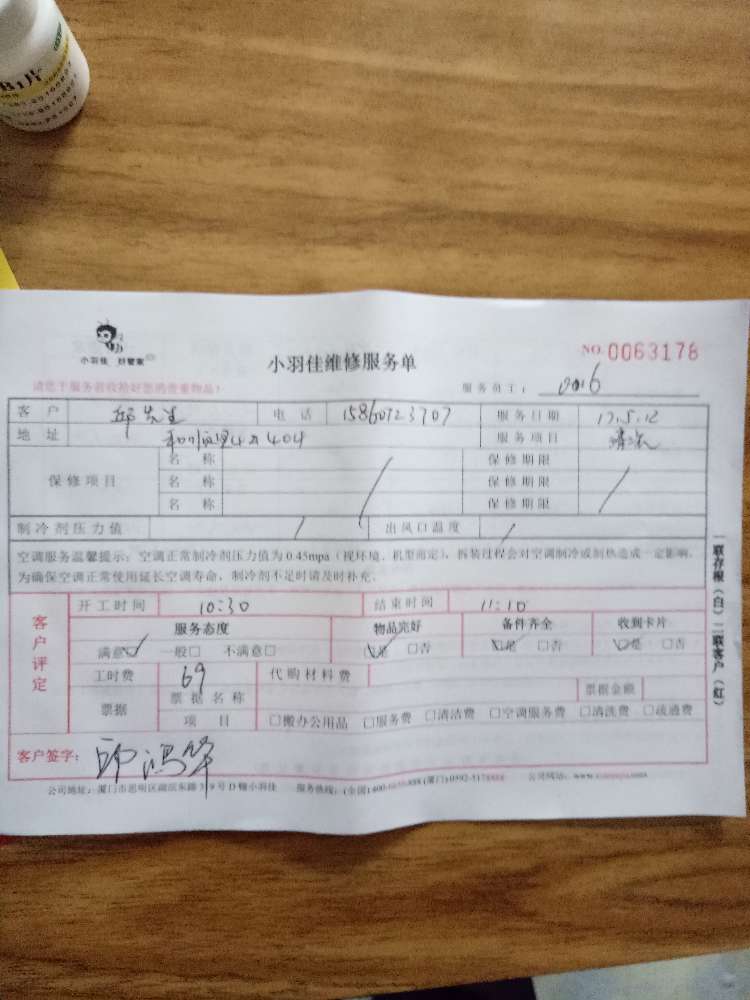 B1片
小羽佳 好管家
小羽佳维修服务单
NO.0063178
请您于服务前收拾好您的贵重物品!
服务员工: 0016
客户 邱先生 电话 15860723707 服务日期 17.5.12
地址 4 404 服务项目 清洗
保修项目 名称 保修期限
名称 保修期限
名称 保修期限
制冷剂压力值 出风口温度
空调服务温馨提示:空调正常制冷剂压力值为0.45mpa(视环境、机型而定),拆装过程会对空调制冷或制热造成一定影响,
为确保空调正常使用延长空调寿命,制冷剂不足时请及时补充。
一联存根(白)二联客户(红)
客户评定
开工时间 10:30 结束时间 11:10
服务态度 物品完好 备件齐全 收到卡片
满意□ 一般□ 不满意□ □是 □否 □是 □否 □是 □否
工时费 69 代购材料费
票据 票据名称 票据金额
项目 □搬办公用品 □服务费 □清洁费 □空调服务费 □清洗费 □疏通费
客户签字: 邱鸿华
公司地址:厦门市思明区 小羽佳 服务热线:(全国)400 (厦门)0592-5178 公司网站:www.